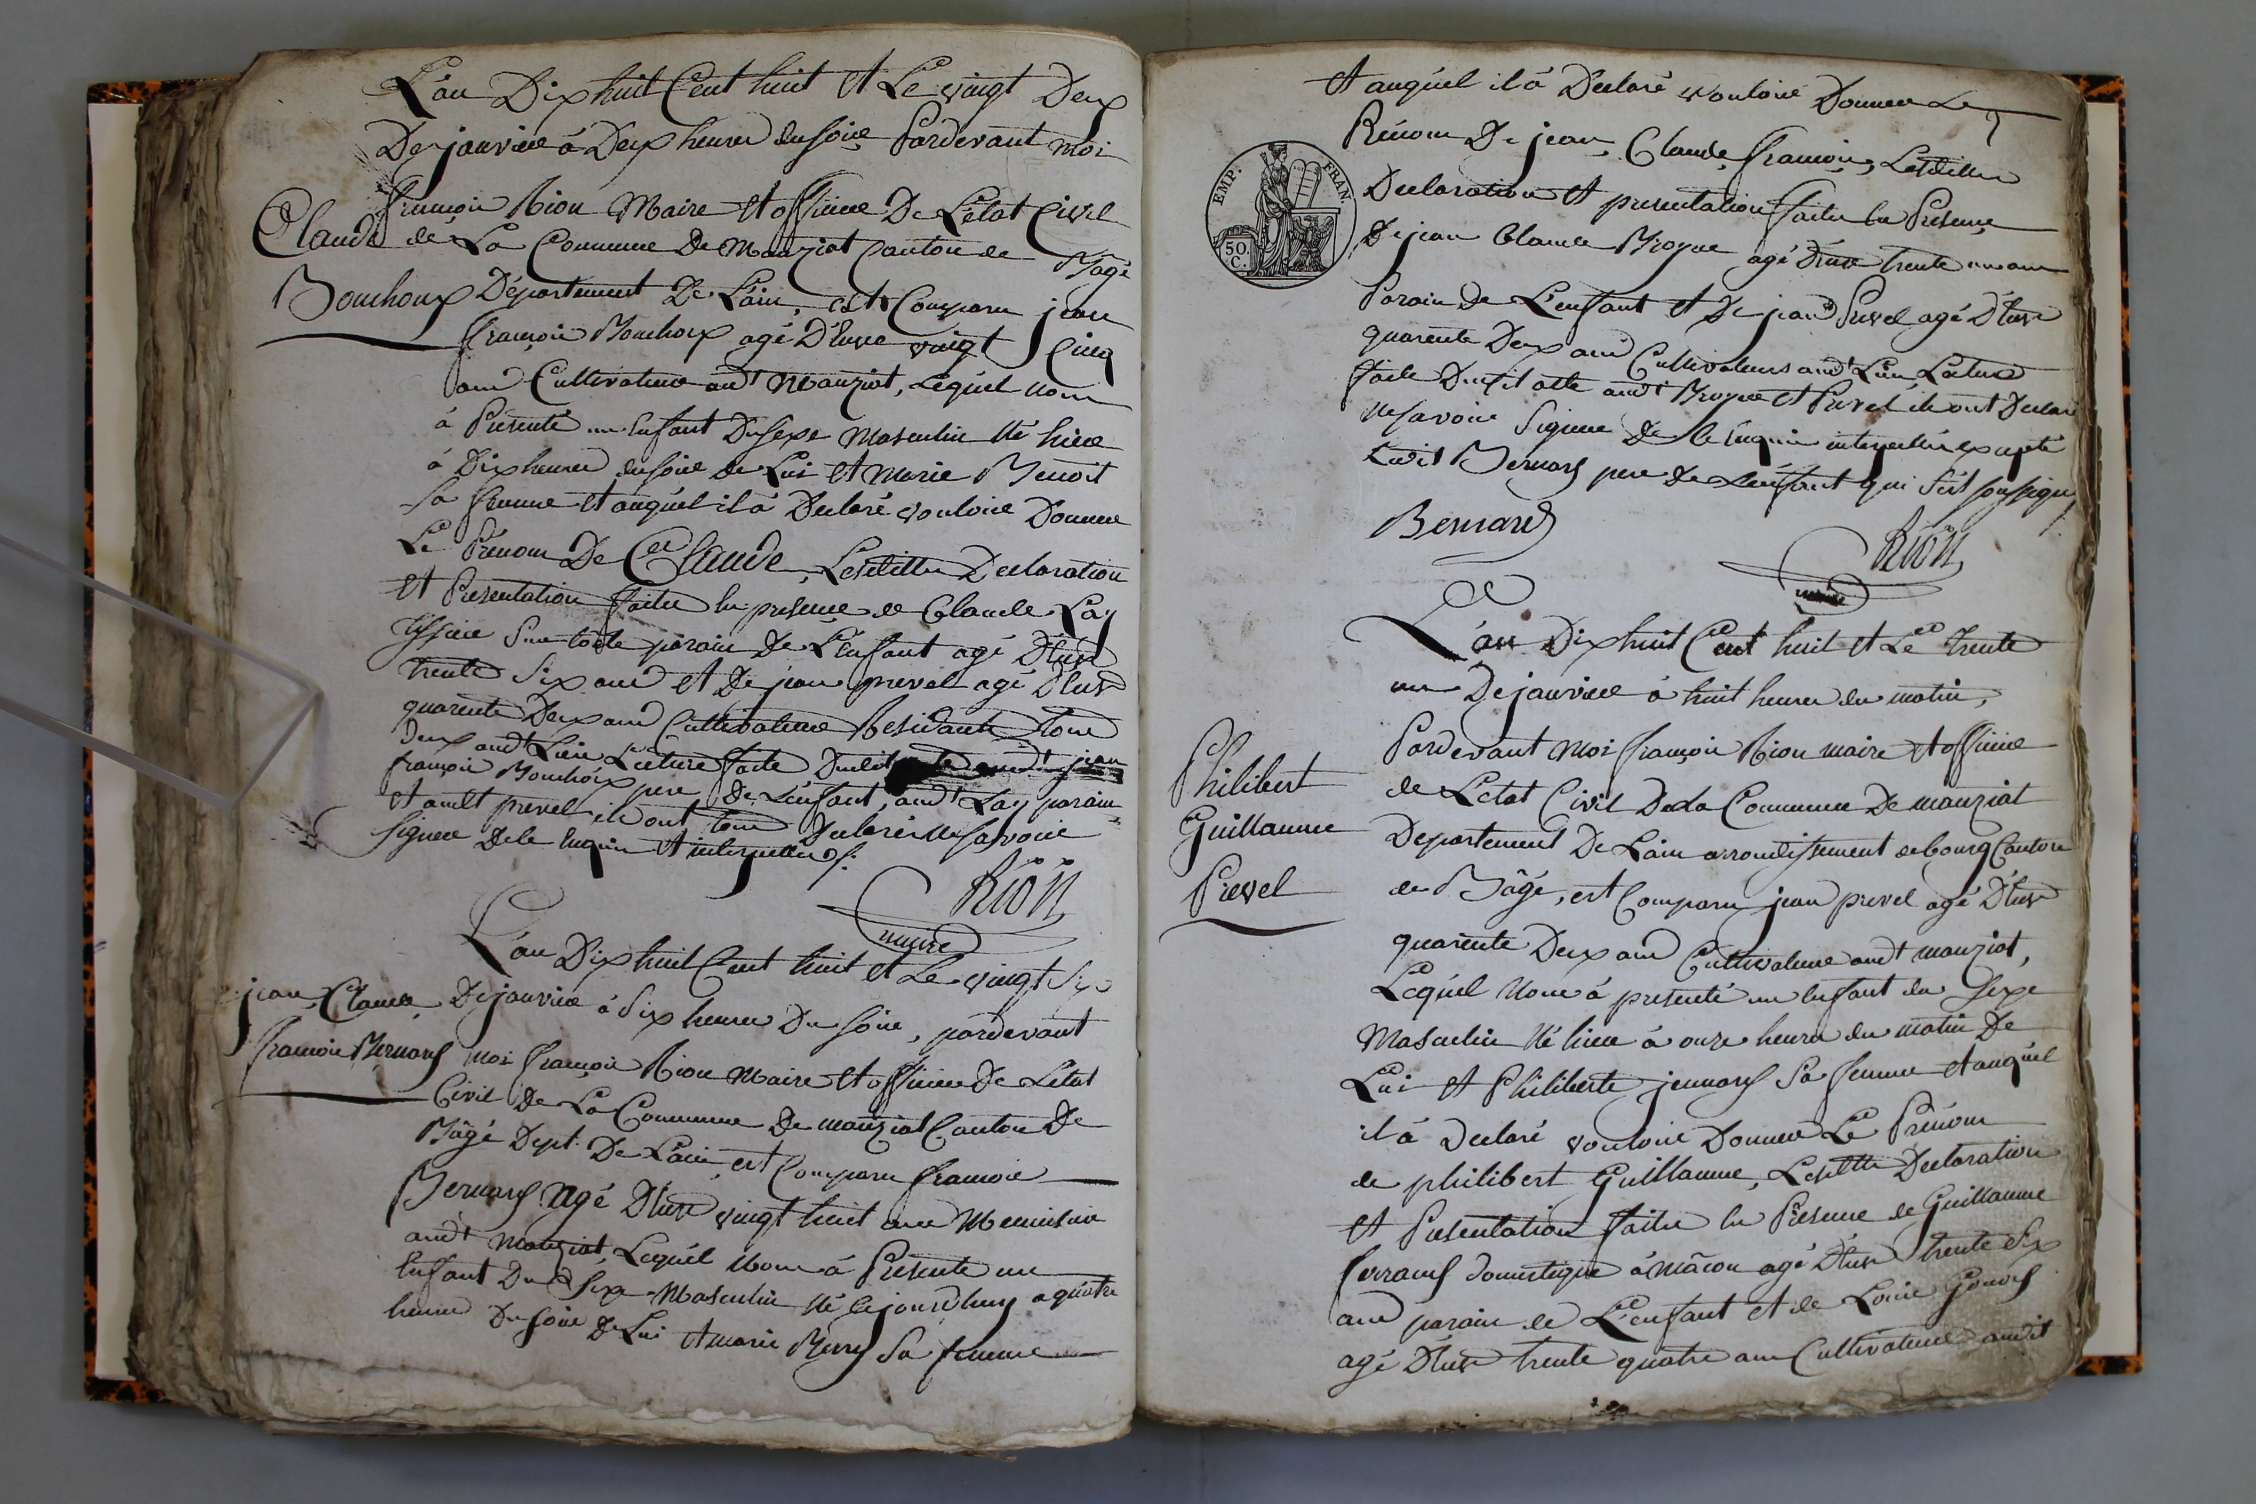 L'an Dix huit Cent huit et Le vingt Deux
De janvier à Deux heures du soir Pardevant moi
françois Rion Maire et officier De L'état Civil
Claude
de La Commune De Manziat Canton de Bâgé
Bouchoux
Département De L'ain, est Comparu jean
françois Bouchoux agé D'Eure vingt Cinq
ans Cultivateur audt Manziat, Lequel nous
à Présenté un Enfant Du sexe Masculin né hier
à Dix heures du soir de Lui et Marie Benoit
sa femme et auquel il à Declaré vouloir Donner
Le Prénom De Claude, Lesdittes Declaration
et Présentation faites En presence de Claude Lay
parain De L'Enfant agé D'Eure
trente Six ans et De jean prevel agé D'Eure
quarente Deux ans Cultivateurs Residants tous
Deux audt Lieu Lecture faite Dudit acte audt jean
françois Bouchoux pere De L'enfant, audt Lay parain
et audt prevel ils ont tous Declarés ne savoir
signer De le Enquis et interpellés ./.
Rion
maire
L'an Dix huit Cent huit et Le vingt Six
jean Claude
De janvier à Six heures Du soir, pardevant
françois Bernard
moi françois Rion Maire et officier De L'etat
Civil De La Commune De manziat Canton De
Bâgé Dept. De L'ain, est Comparu françois
Bernard agé D'Eure vingt huit ans Menuisier
audt Manziat, Lequel Nous à Présenté un
Enfant Du Sexe Masculin né cejourdhuy a quatre
heures Du soir De Lui et marie Berry Sa femme
et auquel il à Declaré vouloir Donner Le
Rénom De jean, Claude, françois, Lesdittes
Declaration et presentation faites En Presence
De jean Claude Broyer agé D'Eure trente un ans
Parain De L'enfant et De jean Prevel agé D'Eure
quarente Deux ans Cultivateurs audt Lieu Lecture
faite Dudit acte audt Broyer et Prevel ils ont Declaré
ne savoir Signer De le Enquis interpellés excepté
Ledit Bernard pere De L'enfant qui s'est soussigné ./.
Bernard
Rion
maire
EMP. FRAN.
50. C.
L'an Dix huit Cent huit et Le trente
un De janvier à huit heures du matin,
Pardevant moi françois Rion maire et officier
Philibert
de L'etat Civil De La Commune De manziat
Guillaume
Departement De L'ain arrondissement de bourg Canton
Prevel
de Bâgé, est Comparu jean prevel agé D'Eure
quarente Deux ans Cultivateur audt manziat,
Lequel Nous à presenté un Enfant du Sexe
Masculin né hier à onze heures du matin De
Lui et Philiberte jennard Sa femme et auquel
il à Declaré vouloir Donner Le Prénom
de philibert Guillaume, Lesdittes Declaration
et Presentation faites En Présence de Guillaume
domestique à Mâcon agé D'Eure trente Six
ans parain de L'enfant et de Louis
agé D'Eure trente quatre ans Cultivateur audit